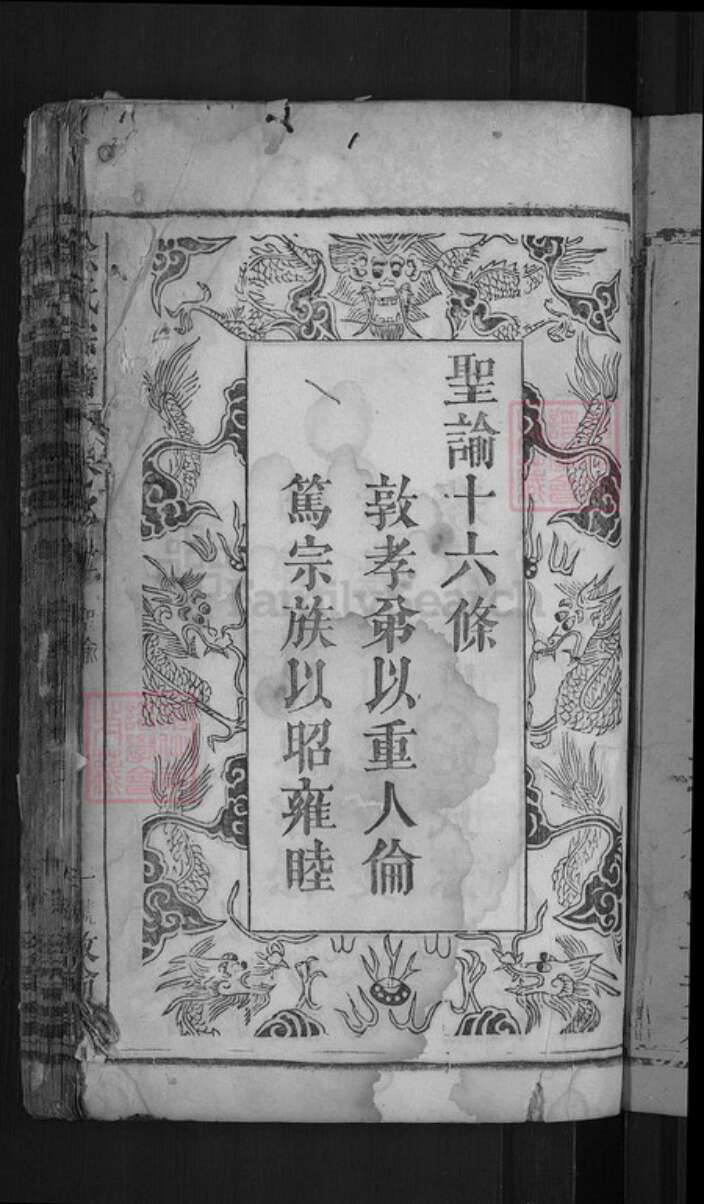 聖諭十六條
敦孝弟以重人倫
篤宗族以昭雍睦
FamilySearch